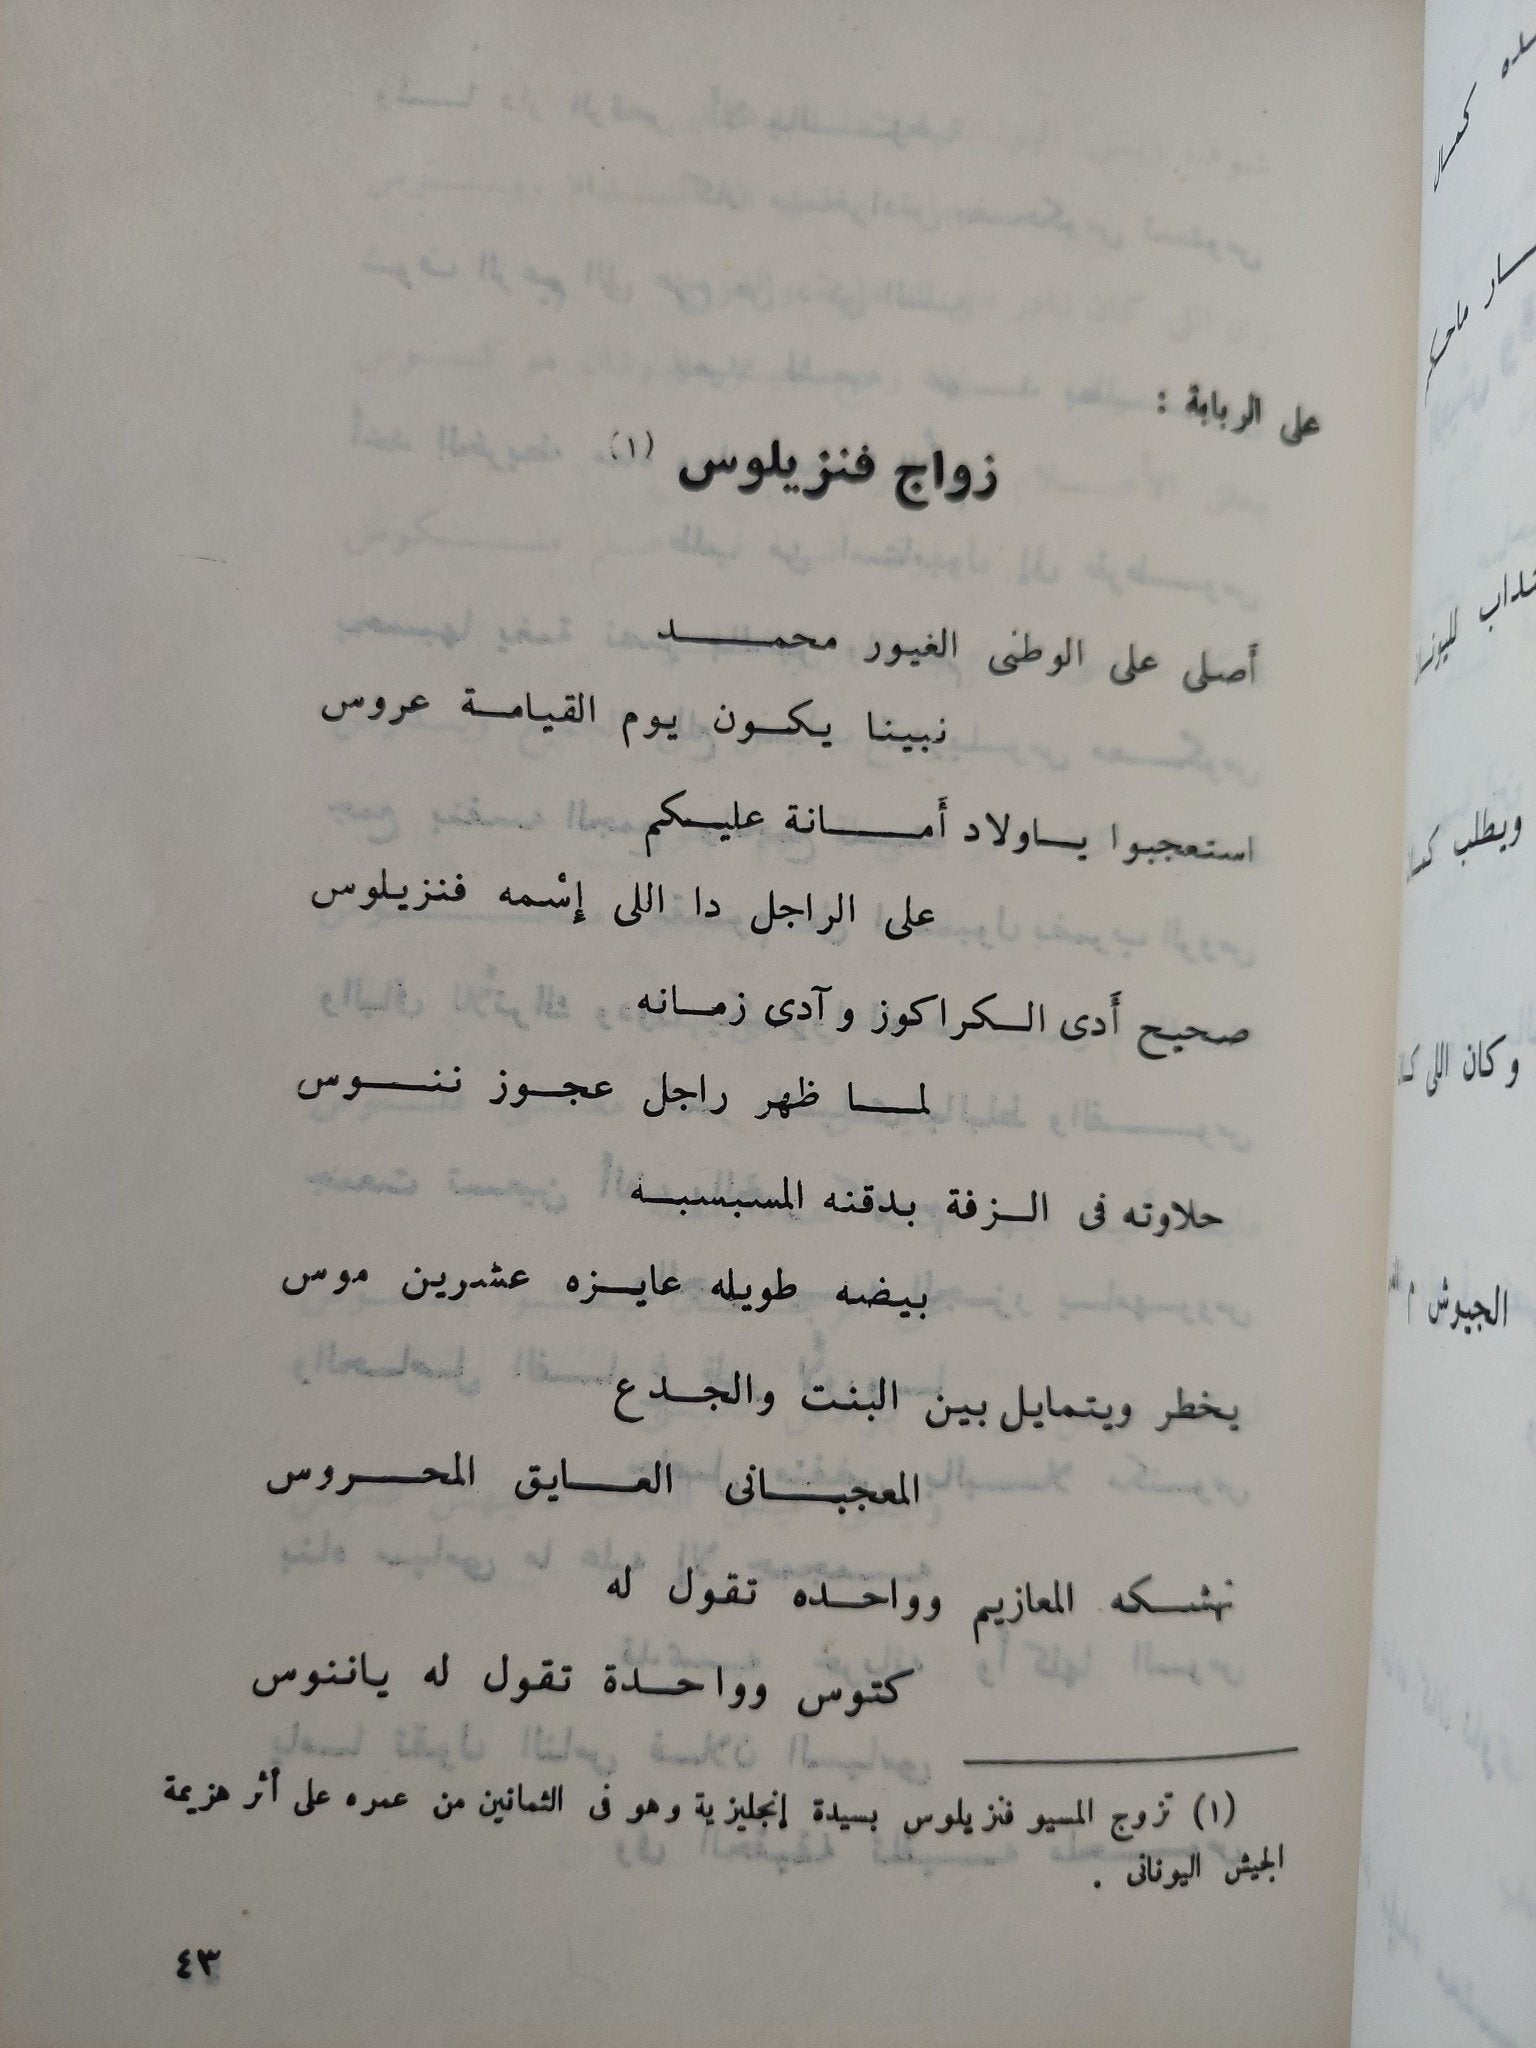 على الربابة :
زواج فنزيلوس (١)
أصلى على الوطنى الغيور محمـــــد
نبينا يكـــون يوم القيامـة عروس
استعجبوا يـاولاد أمـــــانة عليـكم
على الراجل دا اللى إسْمه فنزيـلوس
صحيح أدى الـكراكوز وآدى زمـانه
لمـــا ظهر راجل عجـوز ننـــوس
حلاوته فى الـزفة بـدقنه المسبسبـه
بـيضه طويله عايـزه عشـرين موس
يخطر ويتمايل بين البنت والجـدع
المعجبـــانى العـايق المحـــروس
نهشـكه المعازيم وواحـده تقول له
كتوس وواحـدة تقول له ياننوس
(١) تزوج المسيو فنزيلوس بسيدة إنجليزية وهو فى الثمانين من عمره على أثر هزيمة
الجيش اليونانى .
٤٣
كمـال
ويطلب
وكان اللى
الجيوش م